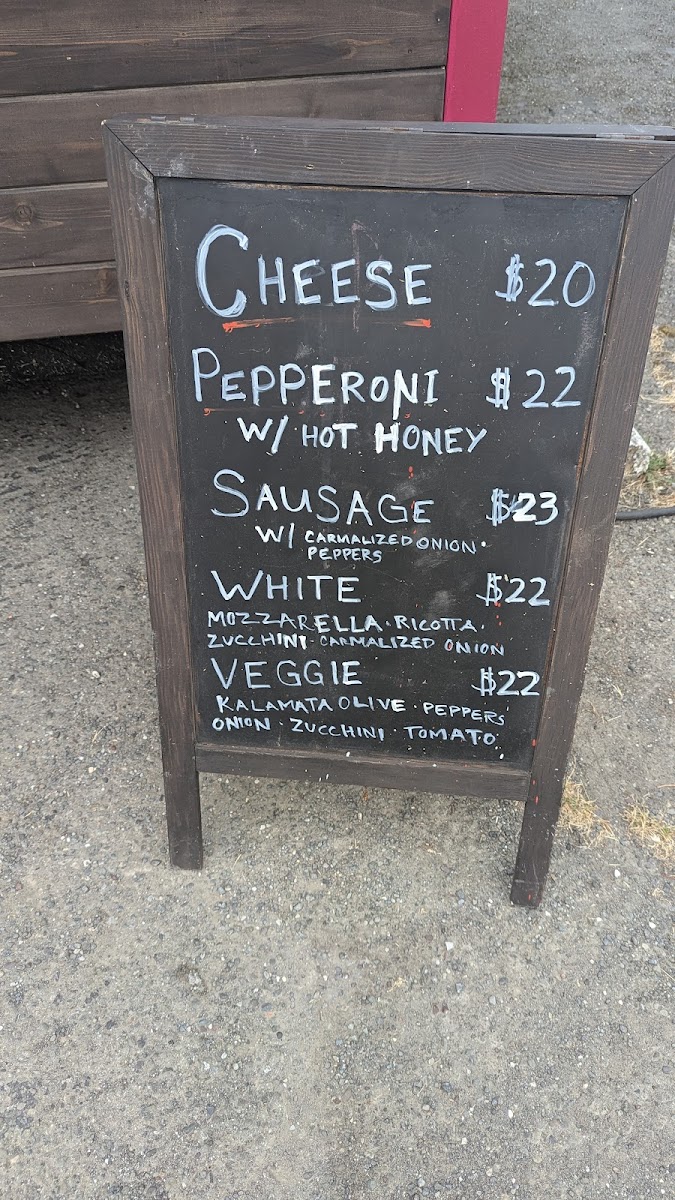 CHEESE $20
PEPPERONI $22
W/ HOT HONEY
SAUSAGE $23
W/ CARMALIZED ONION ·
PEPPERS
WHITE $22
MOZZARELLA · RICOTTA ·
ZUCCHINI · CARMALIZED ONION
VEGGIE $22
KALAMATA OLIVE · PEPPERS
ONION · ZUCCHINI · TOMATO